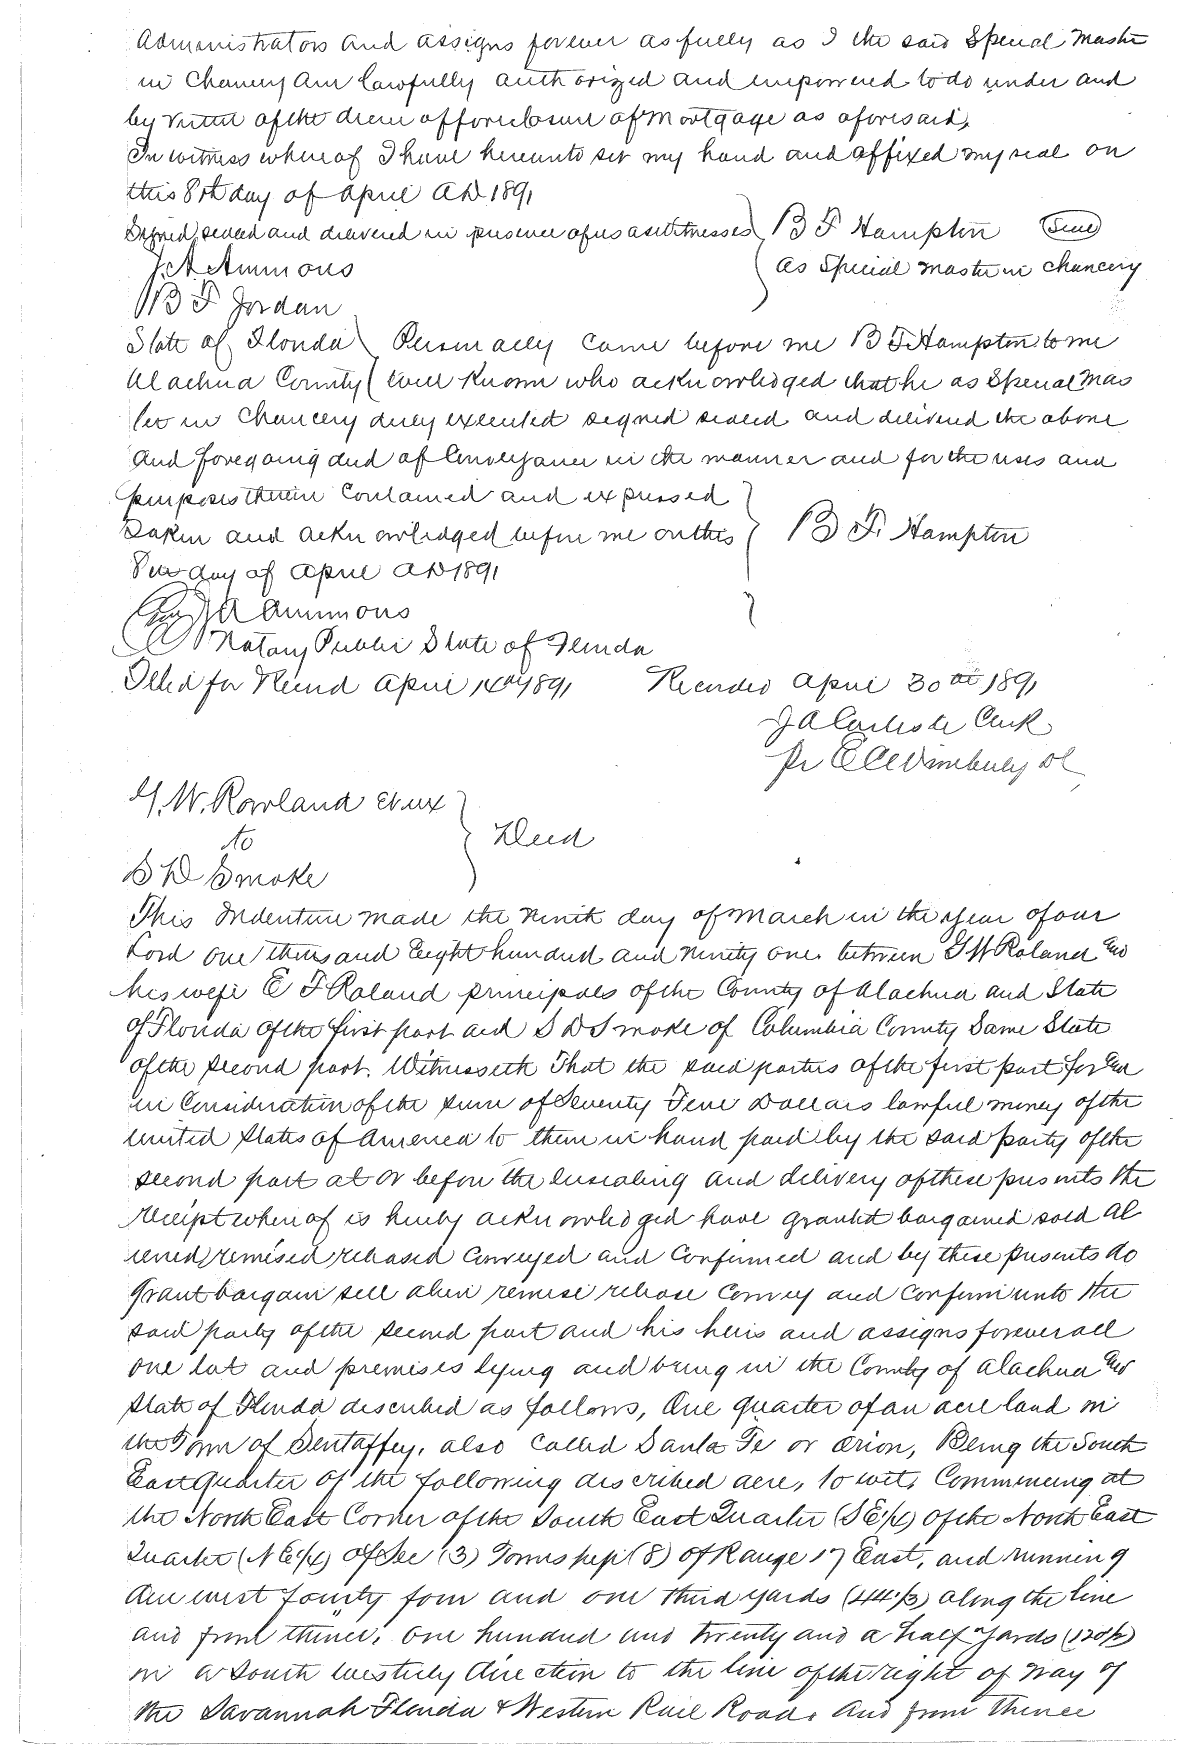 Administrators and assigns forever as fully as I the said Special Master
in Chancery am lawfully authorized and empowered to do under and
by virtue of the decree of foreclosure of Mortgage as aforesaid,
In witness whereof I have hereunto set my hand and affixed my seal on
this 8th day of April AD 1891
Signed, sealed and delivered in presence of us as witnesses B F Hampton Seal
J. A Ammons as Special Master in Chancery
B F Jordan
State of Florida Personally Came before me B F Hampton to me
Alachua County well Known who acknowledged that he as Special Mas
ter in Chancery duly executed signed sealed and delivered the above
and foregoing deed of Conveyance in the manner and for the uses and
purposes therein Contained and expressed
Taken and acknowledged before me on this B F. Hampton
8th day of April AD 1891
J A Ammons
Notary Public State of Florida
Filed for Record April 14th 1891 Recorded April 30th 1891
J A Carlisle Clerk
Pr E C Wimberly DC
G. W. Rowland et ux
to Deed
S D Smoke
This Indenture made the Ninth day of March in the year of our
Lord one thousand Eight hundred and Ninity one. between G W Roland and
his wife E F Roland principals of the County of Alachua and State
of Florida of the first part and S D Smoke of Columbia County Same State
of the second part. Witnesseth That the said parties of the first part for and
in Consideration of the sum of Seventy Five Dollars lawful money of the
United States of America to them in hand paid by the said party of the
second part at or before the ensealing and delivery of these presents the
receipt whereof is hereby acknowledged have granted bargained sold al
iened remised released Conveyed and Confirmed and by these presents do
Grant bargain sell alien remise release Convey and Confirm unto the
said party of the second part and his heirs and assigns forever all
one lot and premises lying and being in the County of Alachua and
State of Florida described as follows, One quarter of an acre land in
the Town of Sentaffey, also Called Santa Fe or Orion, Being the South
East Quarter of the following described acre, to wit, Commencing at
the North East Corner of the South East Quarter (SE1/4) of the North East
Quarter (NE1/4) of Sec (3) Township (8) of Range 17 East, and running
due west fourty four and one third yards (44 1/3) along the line
and from thence, one hundred and twenty and a half yards (120 1/2)
in a South Westerly direction to the line of the right of way of
the Savannah Florida & Western Rail Road. and from thence